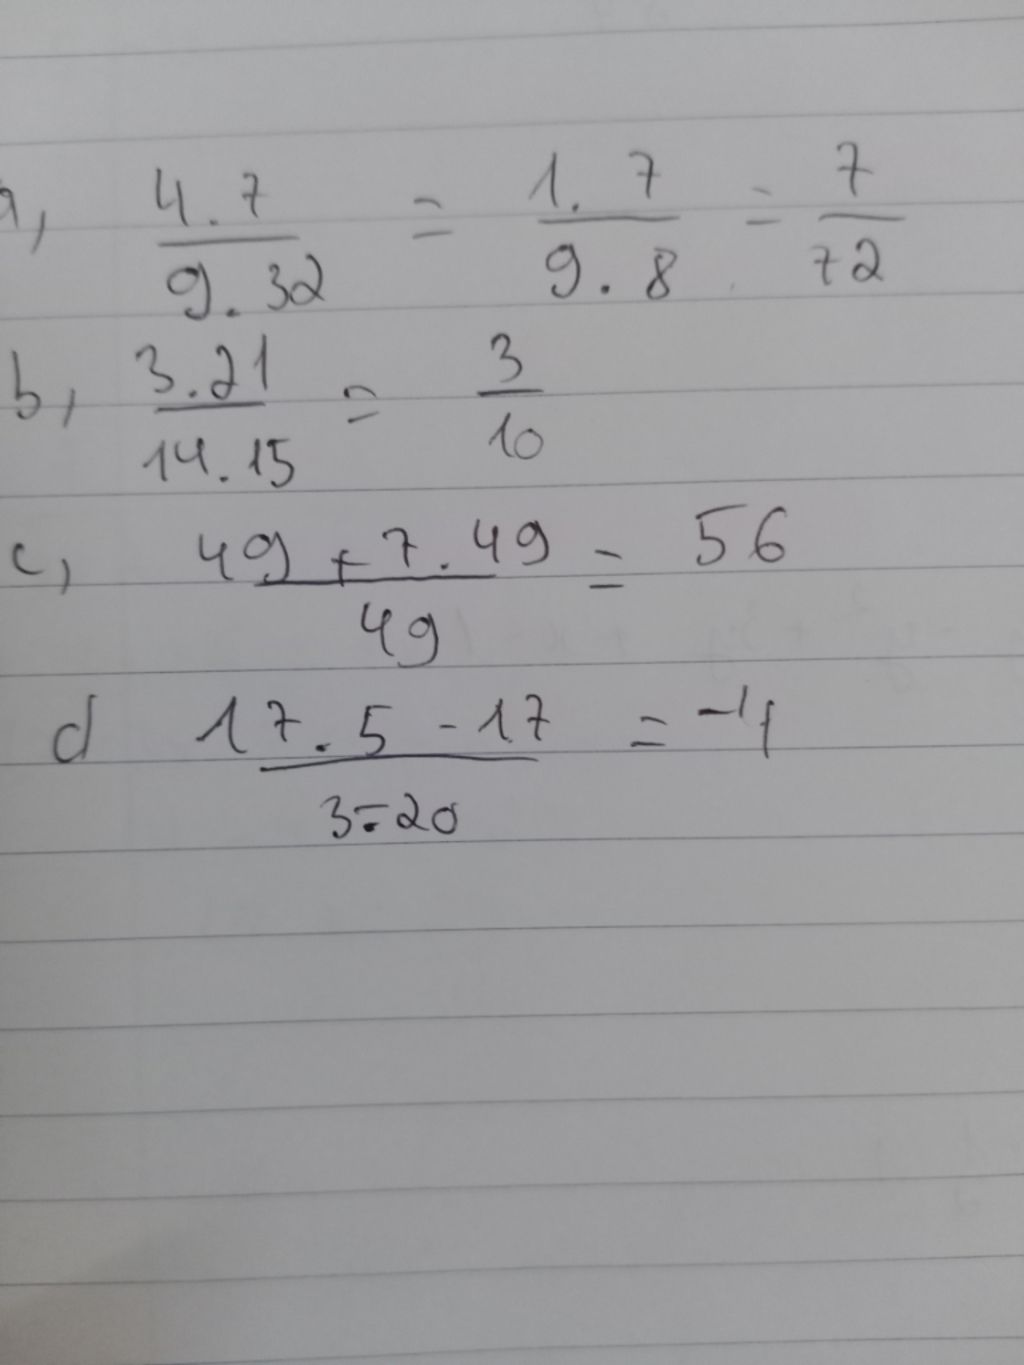 a, 4.7/9.32 = 1.7/9.8 = 7/72
b, 3.21/14.15 = 3/10
c, 49+7.49/49 = 56
d 17.5-17/3-20 = -4